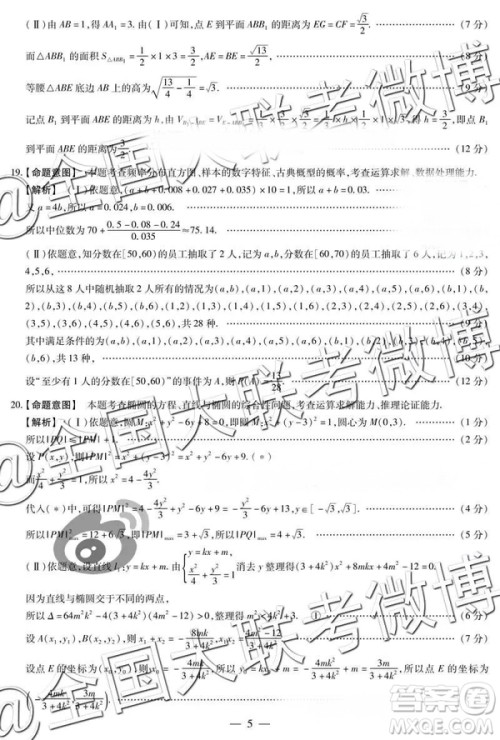 (Ⅱ)由AB=1,得AA₁=3.由(Ⅰ)可知,点E到平面ABB₁的距离为EG=CF=√3/2. (7分)
而△ABB₁的面积S△ABB₁=1/2×1×3=3/2,AE=BE=√13/2, (8分)
等腰△ABE底边AB上的高为√(13/4-1/4)=√3. (9分)
记点B₁到平面ABE的距离为h,由
到平面ABE的距离为3/2. (12分)
19.【命题意图】本题考查频率分布直方图,样本的数字特征、古典概型的概率,考查运算求解、数据处理能力.
【解析】(Ⅰ)依意,(a+b+0.008+0.027+0.035)×10=1,所以
又a=4b,所以a=0.024,b=0.006.
所以中位数为70+(0.5-0.08-0.24)/0.035≈75.14.
(Ⅱ)依题意,知分数在[50,60)的员工抽取了2人,记为a,b,分数在[60,70)的员工抽取了6人,记为1,2,3,
4,5,6, (8分)
所以从这8人中随机抽取2人所有的情况为(a,b),(a,1),(a,2),(a,3),(a,4),(a,5),(a,6),(b,1),(b,
2),(b,3),(b,4),(b,5),(b,6),(1,2),(1,3),(1,4),(1,5),(1,6),(2,3),(2,4),(2,5),(2,6),(3,4),
(3,5),(3,6),(4,5),(4,6),(5,6),共28种. (9分)
其中满足条件的为(a,b),(a,1),(a,2),(a,3),(a,4),(a,5),(a,6),(b,1),(b,2),
(b,6),共13种,
设“至少有1人的分数在[50,60)”的事件为A,则P(A)=13/28. (12分)
20.【命题意图】本题考查椭圆的方程、直线与椭圆的综合性问题,考查运算求解能力、推理论证能力.
【解析】(Ⅰ)依题意, 圆心为M(0,3). (1分)
所以|PQ| (2分)
设P(x,y),则 (*)
而 所以x²=4-4y²/3.
代入(*)中,可得|PM|²=4-4y²/3+y²-6y+9=-y²/3-6y+13,y∈[-√3,√3]. (4分)
所以|PM|²max=12+6√3,即|PM|max=3+√3,所以|PQ|max=4+√3. (5分)
(Ⅱ)依题意,设直线l:y=kx+m.由{y=kx+m, x²/4+y²/3=1}消去y整理得(3+4k²)x²+8mkx+4m²-12=0.
因为直线与椭圆交于不同的两点,
所以Δ=64m²k²-4(3+4k²)(4m²-12)>0,整理得m²<4k²+3.
设A(x₁,y₁),B(x₂,y₂),则x₁+x₂=-8mk/(3+4k²),x₁x₂=(4m²-12)/(3+4k²). (7分)
设点E的坐标为(x₀,y₀),则x₀=-4mk/(3+4k²),所以y₀=kx₀+m=-4mk²/(3+4k²)+m=3m/(3+4k²),所以点E的坐标为
(-4mk/(3+4k²),3m/(3+4k²)).
— 5 —
@全国大联考微博
答案圈
MXQE.COM